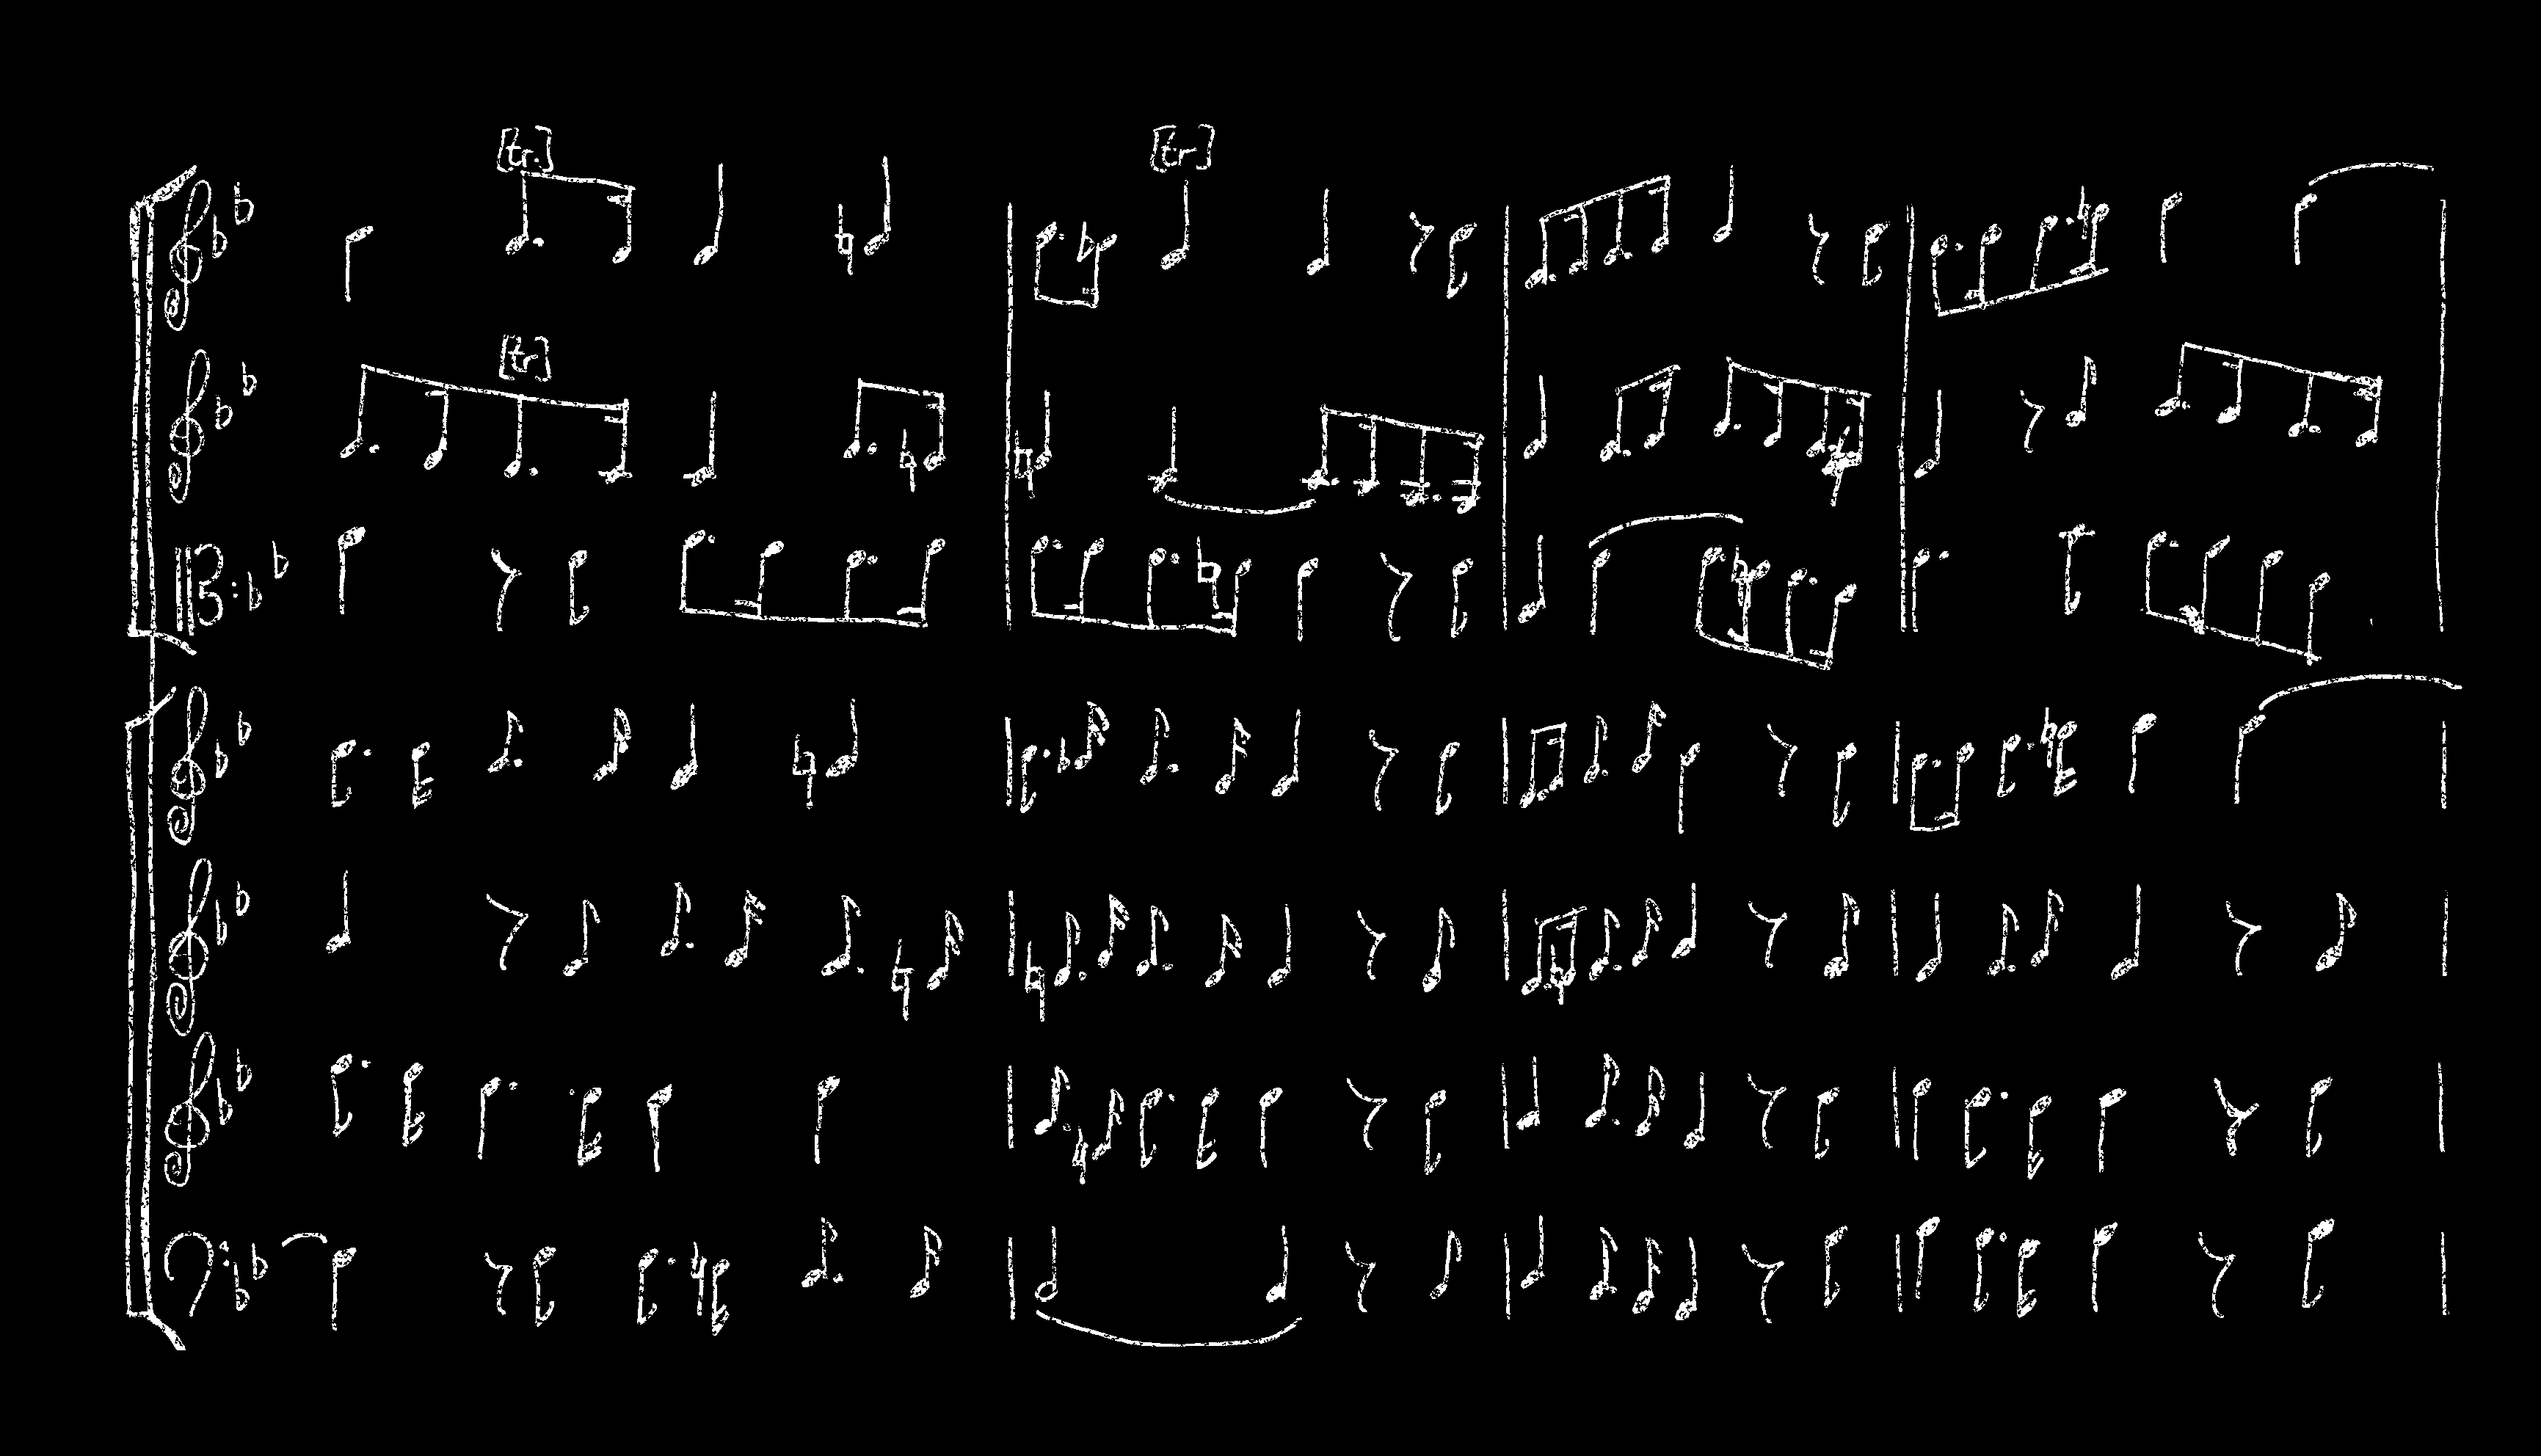 [tr.] [tr]
[tr]